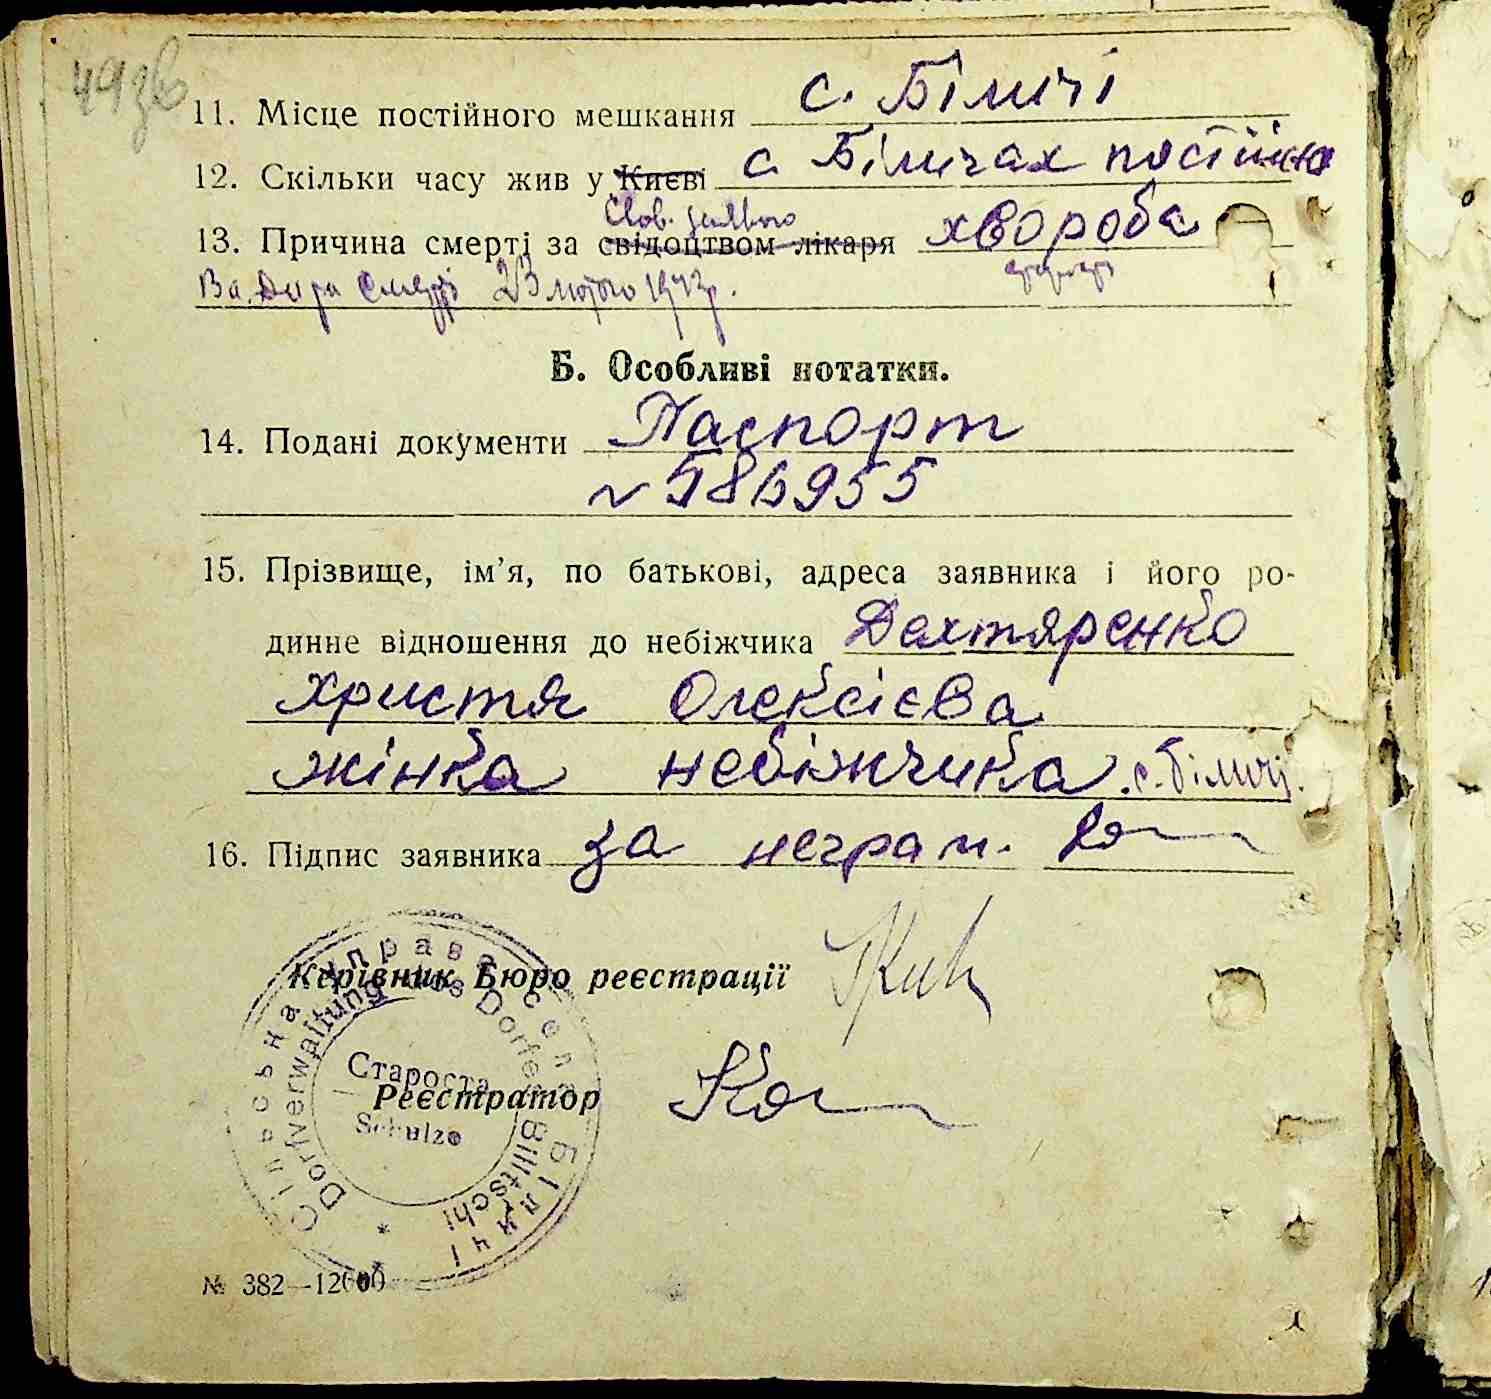 49зв
11. Місце постійного мешкання с. Біличі
12. Скільки часу жив у Києві с. Біличах постійно
13. Причина смерті за свідоцтвом лікаря хвороба
Дата смерті 23 лютого 1943р.
Б. Особливі нотатки.
14. Подані документи Паспорт
№ 586955
15. Прізвище, ім’я, по батькові, адреса заявника і його ро-
динне відношення до небіжчика Дехтяренко
Христя Олексієва
жінка небіжчика. с. Біличі.
16. Підпис заявника за неграм.
Керівник Бюро реєстрації
Реєстратор
Сільська управа села Біличі
Dorfverwaltung des Dorfes Bilitschi
Староста
Schulze
№ 382—12000